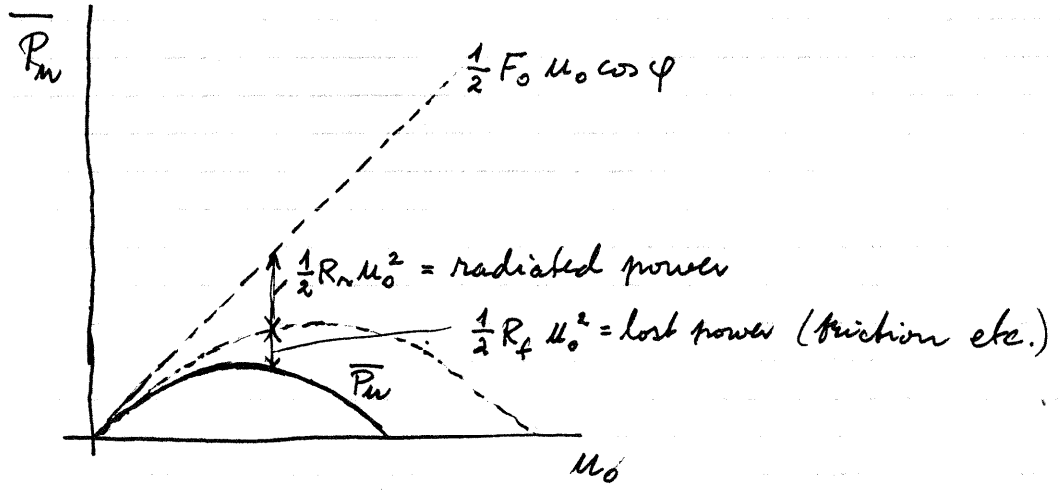 P̅u
½ F₀ u₀ cos φ
½ Rᵣ u₀² = radiated power
½ R_f u₀² = lost power (friction etc.)
P̅u
u₀